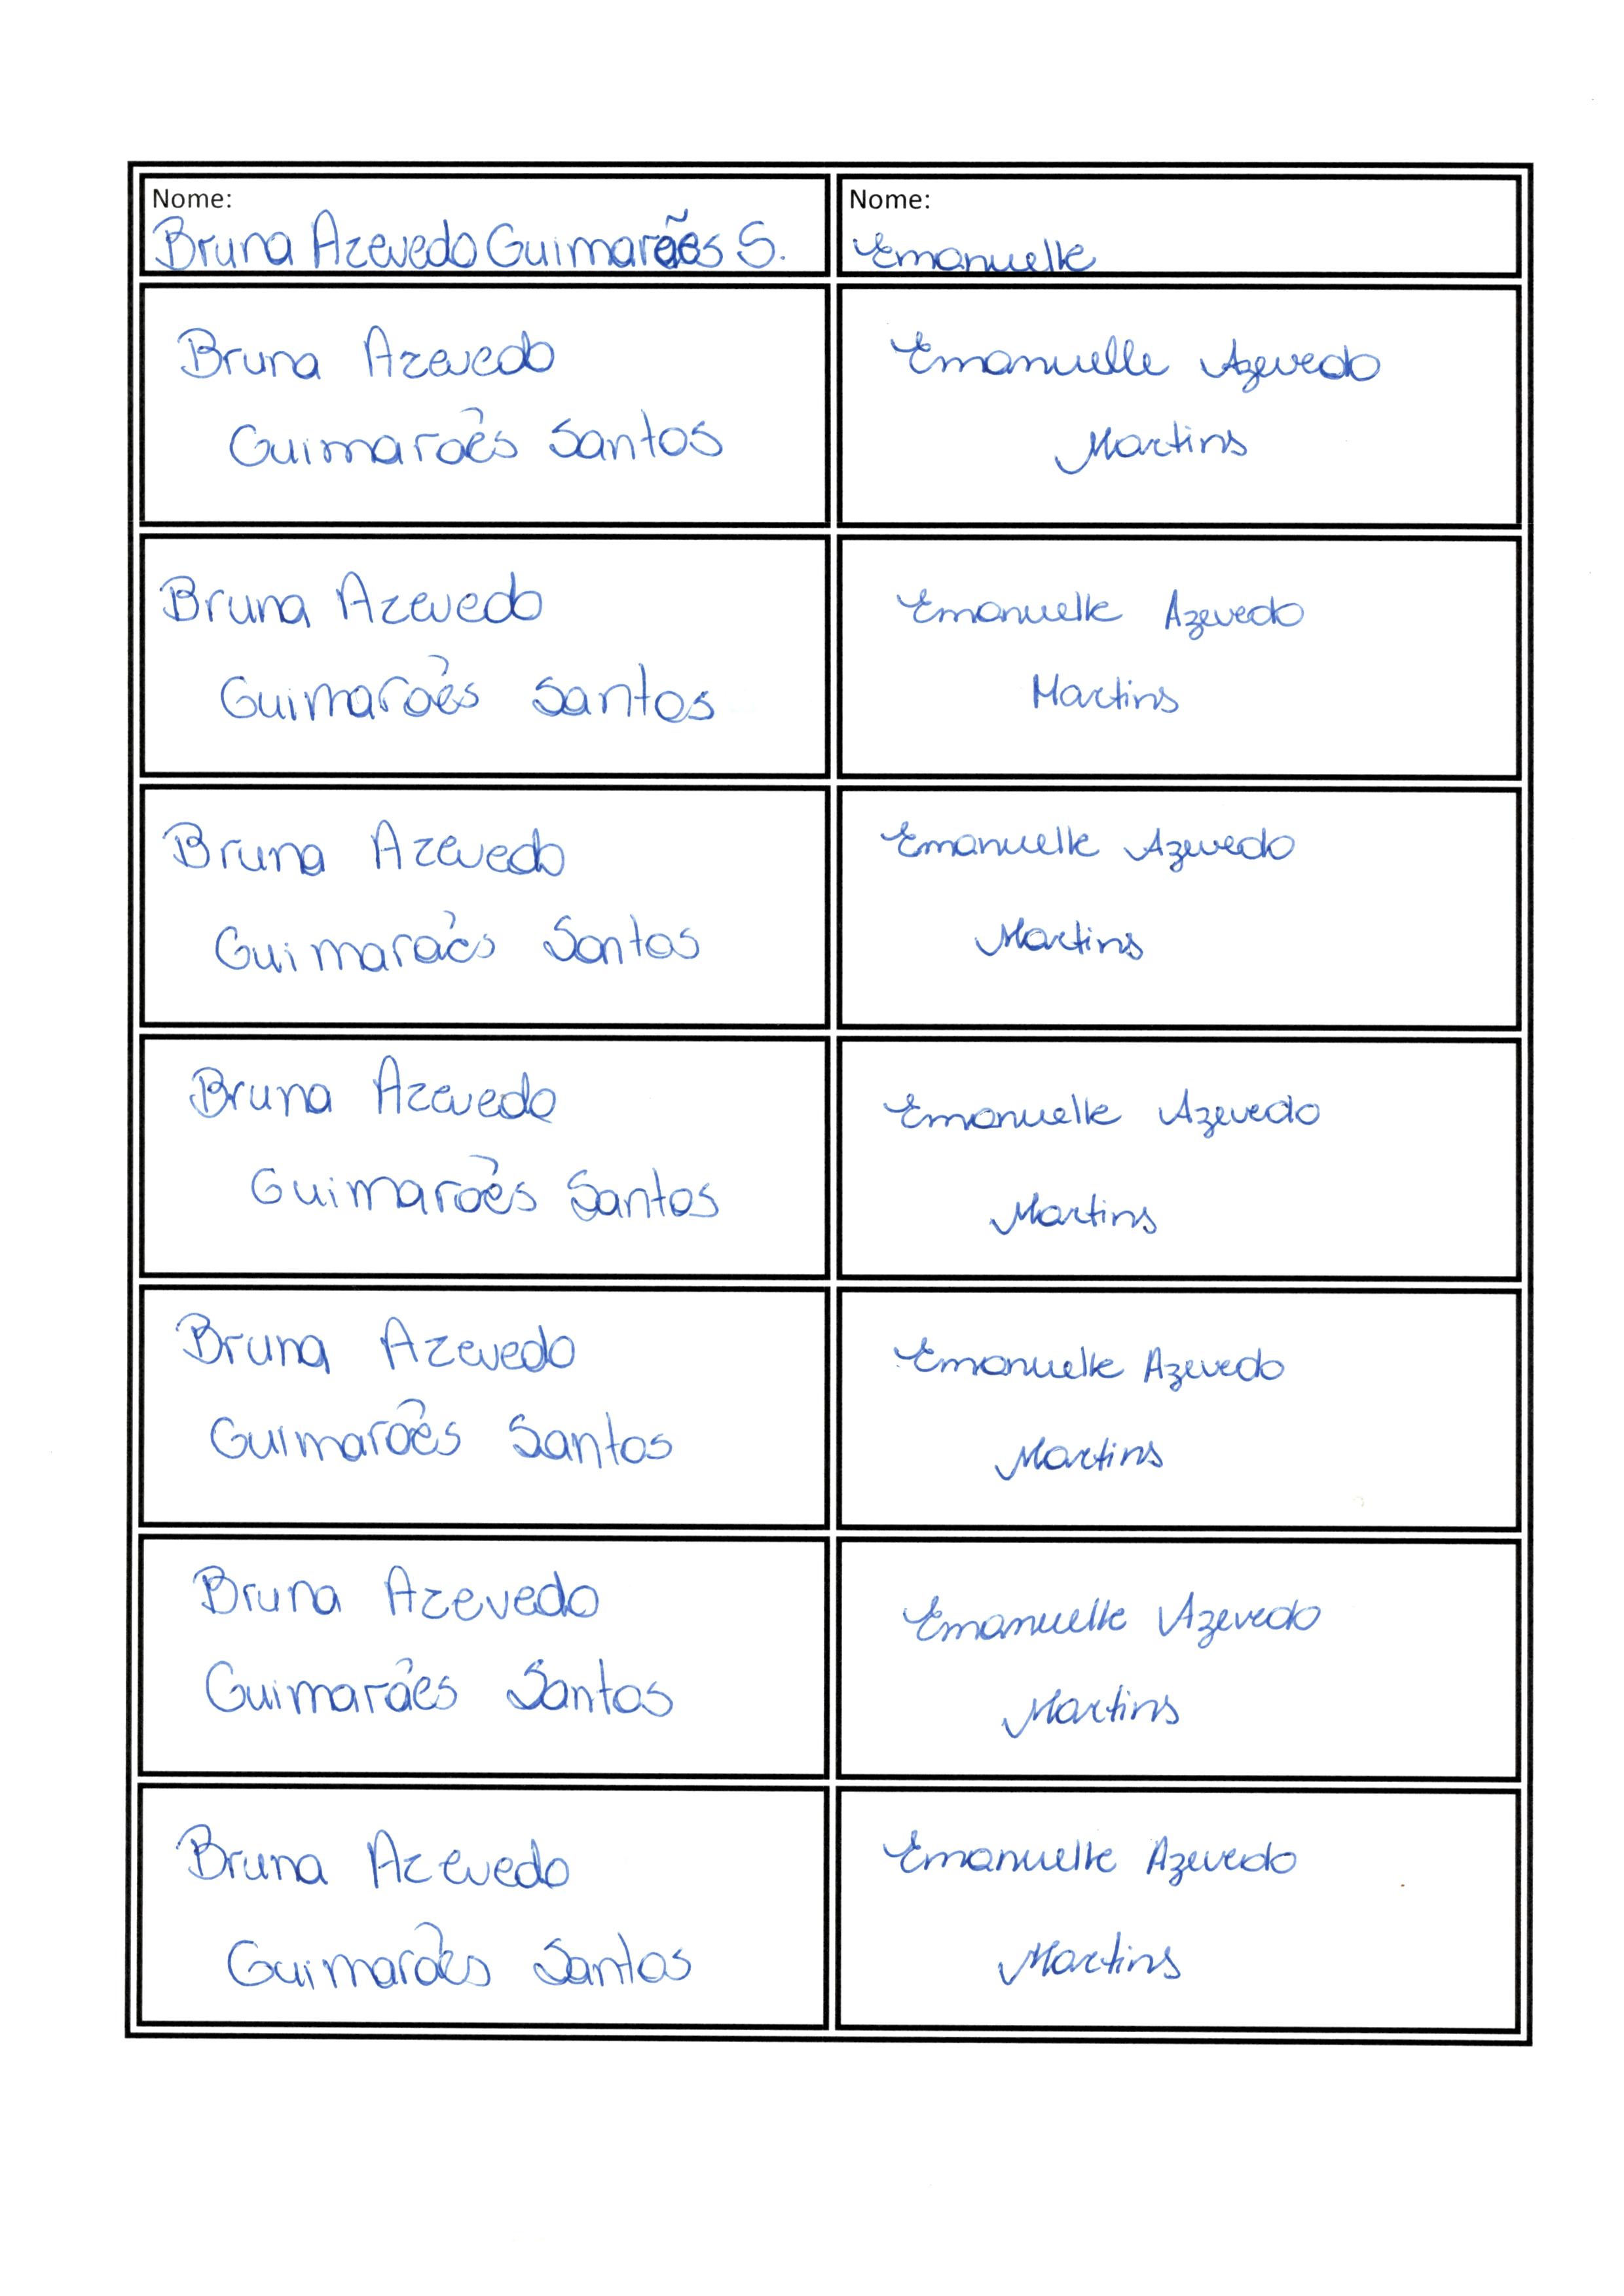 Nome:
Bruna Azevedo Guimarães S.
Nome:
Emanuelle
Bruna Azevedo
Guimarães Santos
Emanuelle Azevedo
Martins
Bruna Azevedo
Guimarães Santos
Emanuelle Azevedo
Martins
Bruna Azevedo
Guimarães Santos
Emanuelle Azevedo
Martins
Bruna Azevedo
Guimarães Santos
Emanuelle Azevedo
Martins
Bruna Azevedo
Guimarães Santos
Emanuelle Azevedo
Martins
Bruna Azevedo
Guimarães Santos
Emanuelle Azevedo
Martins
Bruna Azevedo
Guimarães Santos
Emanuelle Azevedo
Martins